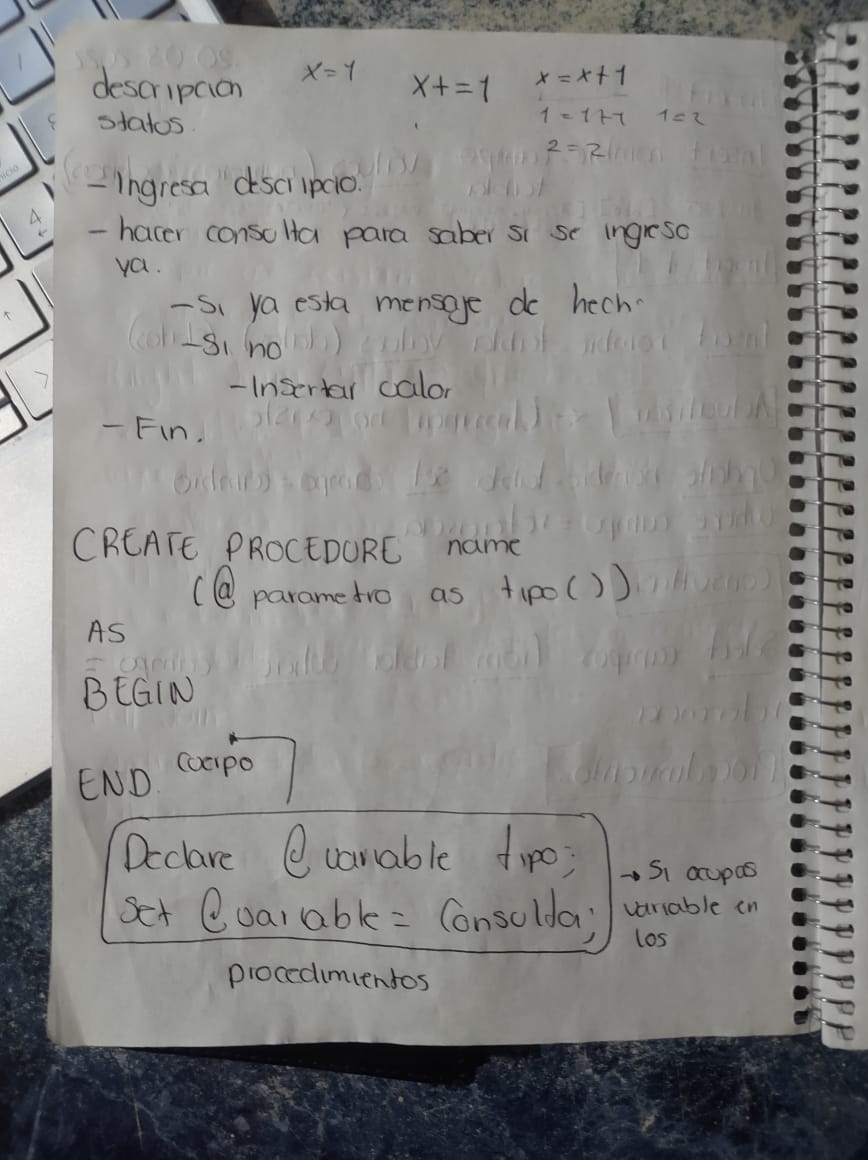 descripcion x=1 x+=1 x=x+1
status. 1=1+1 1=2
2=2
-Ingresa descripcio.
- hacer consulta para saber si se ingreso
ya.
-Si ya esta mensaje de hech
-Si no
-Insertar calor
- Fin.
CREATE PROCEDURE name
(@ parametro as tipo())
AS
BEGIN
cuerpo
END.
Declare @ variable tipo;
Set @ variable = Consulta;
→ Si ocupas
variable en
los
procedimientos